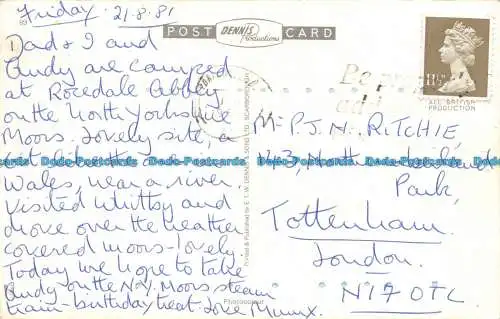 Friday 21.8.81
POST DENNIS Productions CARD
Dad & I and
Andy are camped
at Rosedale Abbey
on the North Yorkshire
Moors. Lovely site, a
bit like the one in
Wales, near a river.
Visited Whitby and
drove over the heather
covered moors - lovely.
Today we hope to take
Andy on the N.Y. Moors steam
train - birthday treat. Love Mum x
Mr P.J.N. RITCHIE
Park,
Tottenham
London.
N17 0TL
ALL BRITISH
PRODUCTION
Printed & Published by E. T. W. DENNIS & SONS LTD., SCARBOROUGH
Photocolour
Dodo-Postcards Dodo-Postcards Dodo-Postcards Dodo-Postcards Dodo-Postcards